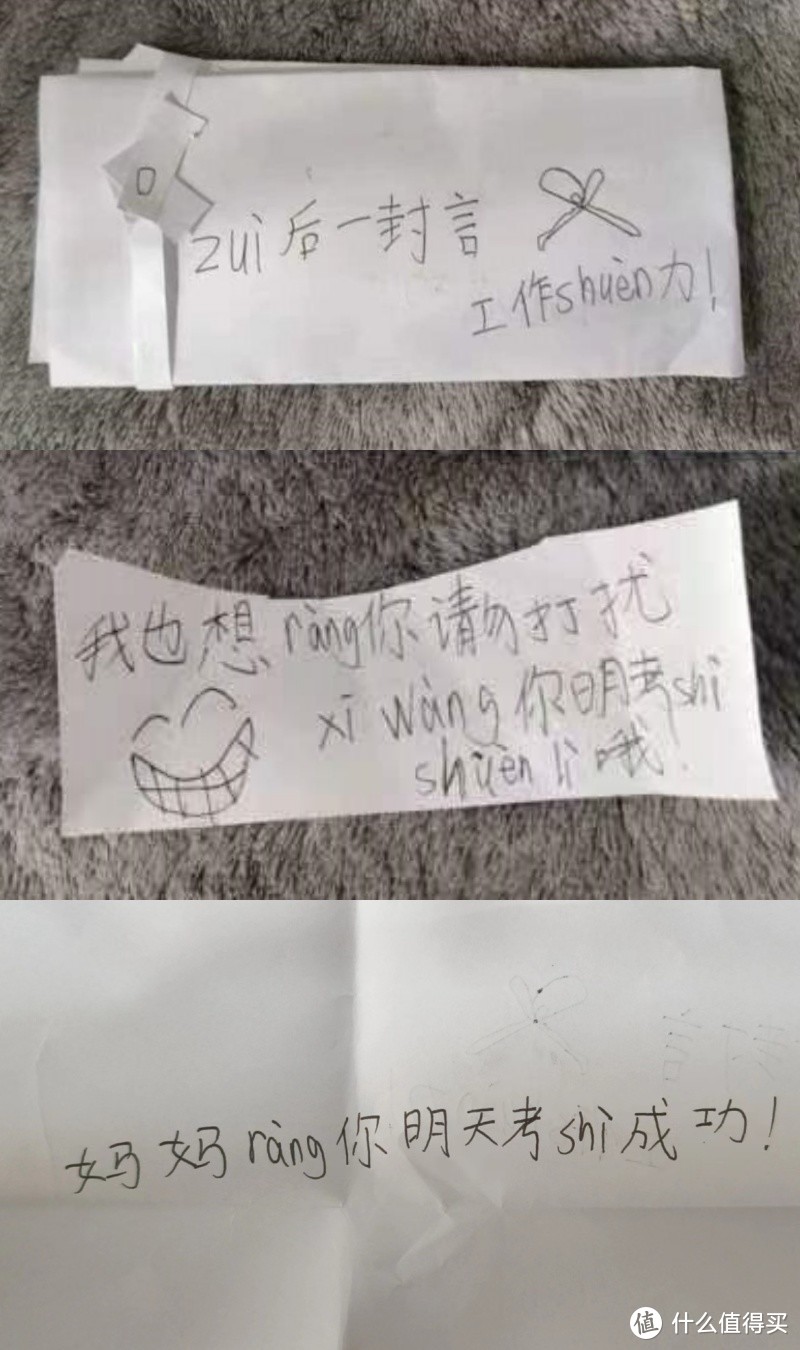 zuì后一封言
工作shuèn力！
我也想ràng你请勿打扰
xī wàng你明考shì
shuèn lì哦！
妈妈ràng你明天考shì成功！
值 什么值得买